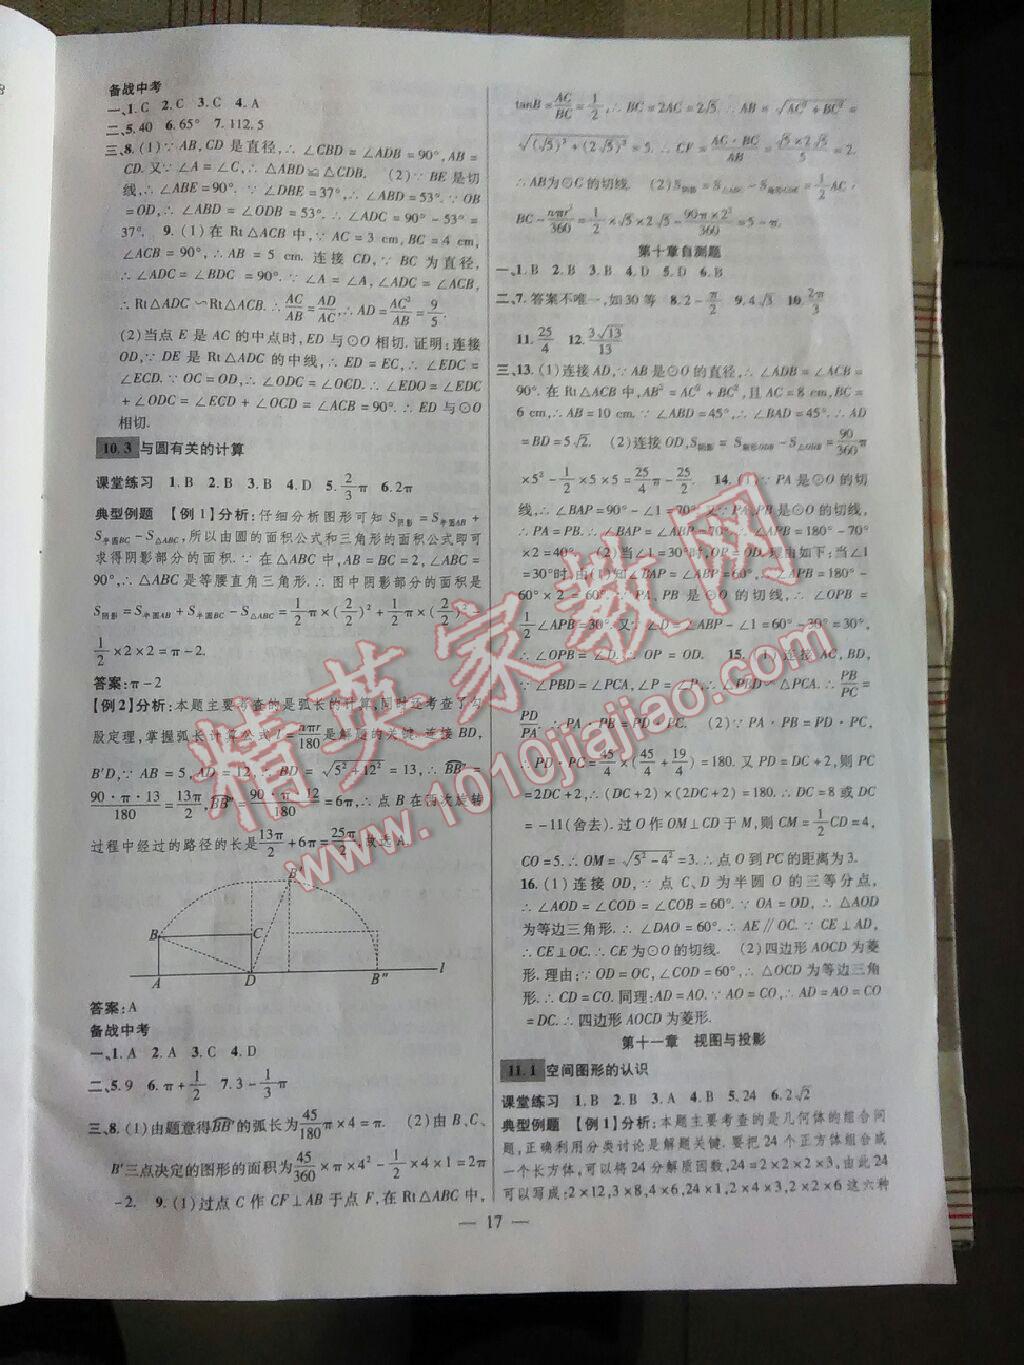 备战中考
一、1. C 2. C 3. C 4. A
二、5. 40 6. 65° 7. 112.5
三、8. (1)∵AB,CD是直径,∴∠CBD=∠ADB=90°,AB=
CD.又∵∠A=∠C,∴△ABD≌△CDB. (2)∵BE是切
线,∴∠ABE=90°.∵∠DBE=37°,∴∠ABD=53°.∵OB
=OD,∴∠ABD=∠ODB=53°.∴∠ADC=90°-53°=
37°. 9. (1)在Rt△ACB中,∵AC=3 cm,BC=4 cm,
∠ACB=90°,∴AB=5 cm.连接CD,∵BC为直径,
∴∠ADC=∠BDC=90°.∵∠A=∠A,∠ADC=∠ACB,
∴Rt△ADC∽Rt△ACB.∴AC/AB=AD/AC,∴AD=AC²/AB=9/5.
(2)当点E是AC的中点时,ED与⊙O相切.证明:连接
OD,∵DE是Rt△ADC的中线,∴ED=EC,∴∠EDC=
∠ECD.∵OC=OD,∴∠ODC=∠OCD.∴∠EDO=∠EDC
+∠ODC=∠ECD+∠OCD=∠ACB=90°.∴ED与⊙O
相切.
10.3 与圆有关的计算
课堂练习 1. B 2. B 3. B 4. D 5. 2/3π 6. 2π
典型例题 【例1】分析:仔细分析图形可知S阴影=S半圆AB+
S半圆BC-S△ABC,所以由圆的面积公式和三角形的面积公式即可
求得阴影部分的面积.∵在△ABC中,AB=BC=2,∠ABC=
90°,∴△ABC是等腰直角三角形.∴图中阴影部分的面积是
S阴影=S半圆AB+S半圆BC-S△ABC=1/2π×(2/2)²+1/2π×(2/2)²-
1/2×2×2=π-2.
答案:π-2
【例2】分析:本题主要考查的是弧长的计算,同时还考查了勾
股定理,掌握弧长计算公式l=nπr/180是解题的关键.连接BD,
B'D,∵AB=5,AD=12,∴BD=√5²+12²=13,∴BB'=
90·π·13/180=13π/2,B'B''=90·π·12/180=6π.∴点B在两次旋转
过程中经过的路径的长是13π/2+6π=25π/2,故选A.
B'
B
C
A
D
B''
l
答案:A
备战中考
一、1. A 2. A 3. C 4. D
二、5. 9 6. π+1/2 7. 3-1/3π
三、8. (1)由题意得BB'的弧长为45/180π×4=π. (2)由B、C、
B'三点决定的图形的面积为45/360×π×4²-1/2×4×1=2π
-2. 9. (1)过点C作CF⊥AB于点F,在Rt△ABC中,
tanB=AC/BC=1/2,∴BC=2AC=2√5.∴AB=√AC²+BC²=
√(√5)²+(2√5)²=5.∴CF=AC·BC/AB=√5×2√5/5=2.
∴AB为⊙C的切线. (2)S阴影=S△ABC-S扇形=1/2AC·
BC-nπr²/360=1/2×√5×2√5-90π×2²/360=5-π.
第十章自测题
一、1. B 2. B 3. B 4. D 5. D 6. B
二、7. 答案不唯一,如30等 8. 2-π/2 9. 4√3 10. 2π/3
11. 25/4 12. 3√13/13
三、13. (1)连接AD,∵AB是⊙O的直径,∴∠ADB=∠ACB=
90°.在Rt△ACB中,AB²=AC²+BC²,且AC=8 cm,BC=
6 cm,∴AB=10 cm.∵∠ABD=45°,∴∠BAD=45°.∴AD
=BD=5√2. (2)连接OD,S阴影=S扇形BOD-S△BOD=90/360π
×5²-1/2×5×5=25/4π-25/2. 14. (1)∵PA是⊙O的切
线,∴∠BAP=90°-∠1=70°.又∵PA,PB是⊙O的切线,
∴PA=PB.∴∠BAP=∠ABP=70°.∴∠APB=180°-70°
×2=40°. (2)当∠1=30°时,OP=OD.理由如下:当∠1
=30°时,由(1)知∠BAP=∠ABP=60°,∴∠APB=180°-
60°×2=60°.∵PA,PB是⊙O的切线,∴∠OPB=
1/2∠APB=30°.又∵∠D=∠ABP-∠1=60°-30°=30°,
∴∠OPB=∠D.∴OP=OD. 15. (1)连接AC,BD,
∵∠PBD=∠PCA,∠P=∠P,∴△PBD∽△PCA.∴PB/PC=
PD/PA.∴PA·PB=PD·PC. (2)∵PA·PB=PD·PC,
∴PD·PC=45/4×(45/4+19/4)=180.又PD=DC+2,PC
=2DC+2,∴(DC+2)×(2DC+2)=180.∴DC=8或DC
=-11(舍去).过O作OM⊥CD于M,则CM=1/2CD=4,
CO=5.∴OM=√5²-4²=3.∴点O到PC的距离为3.
16. (1)连接OD,∵点C、D为半圆O的三等分点,
∴∠AOD=∠COD=∠COB=60°.∵OA=OD,∴△AOD
为等边三角形.∴∠DAO=60°.∴AE∥OC.∵CE⊥AD,
∴CE⊥OC.∴CE为⊙O的切线. (2)四边形AOCD为菱
形.理由:∵OD=OC,∠COD=60°,∴△OCD为等边三角
形.∴CD=CO.同理:AD=AO.∵AO=CO,∴AD=AO=CO
=DC.∴四边形AOCD为菱形.
第十一章 视图与投影
11.1 空间图形的认识
课堂练习 1. B 2. B 3. A 4. B 5. 24 6. 2√2
典型例题 【例1】分析:本题主要考查的是几何体的组合问
题,正确利用分类讨论是解题关键.要把24个正方体组合成
一个长方体,可以将24分解质因数,24=2×2×2×3,由此24
可以写成:2×12,3×8,4×6,24×1,2×4×3,2×2×6这六种
— 17 —
精英家教网
www.1010jiajiao.com